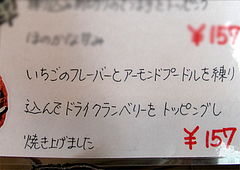 ほのかな甘み
¥157
いちごのフレーバーとアーモンドプードルを練り
込んでドライクランベリーをトッピングし
焼き上げました
¥157